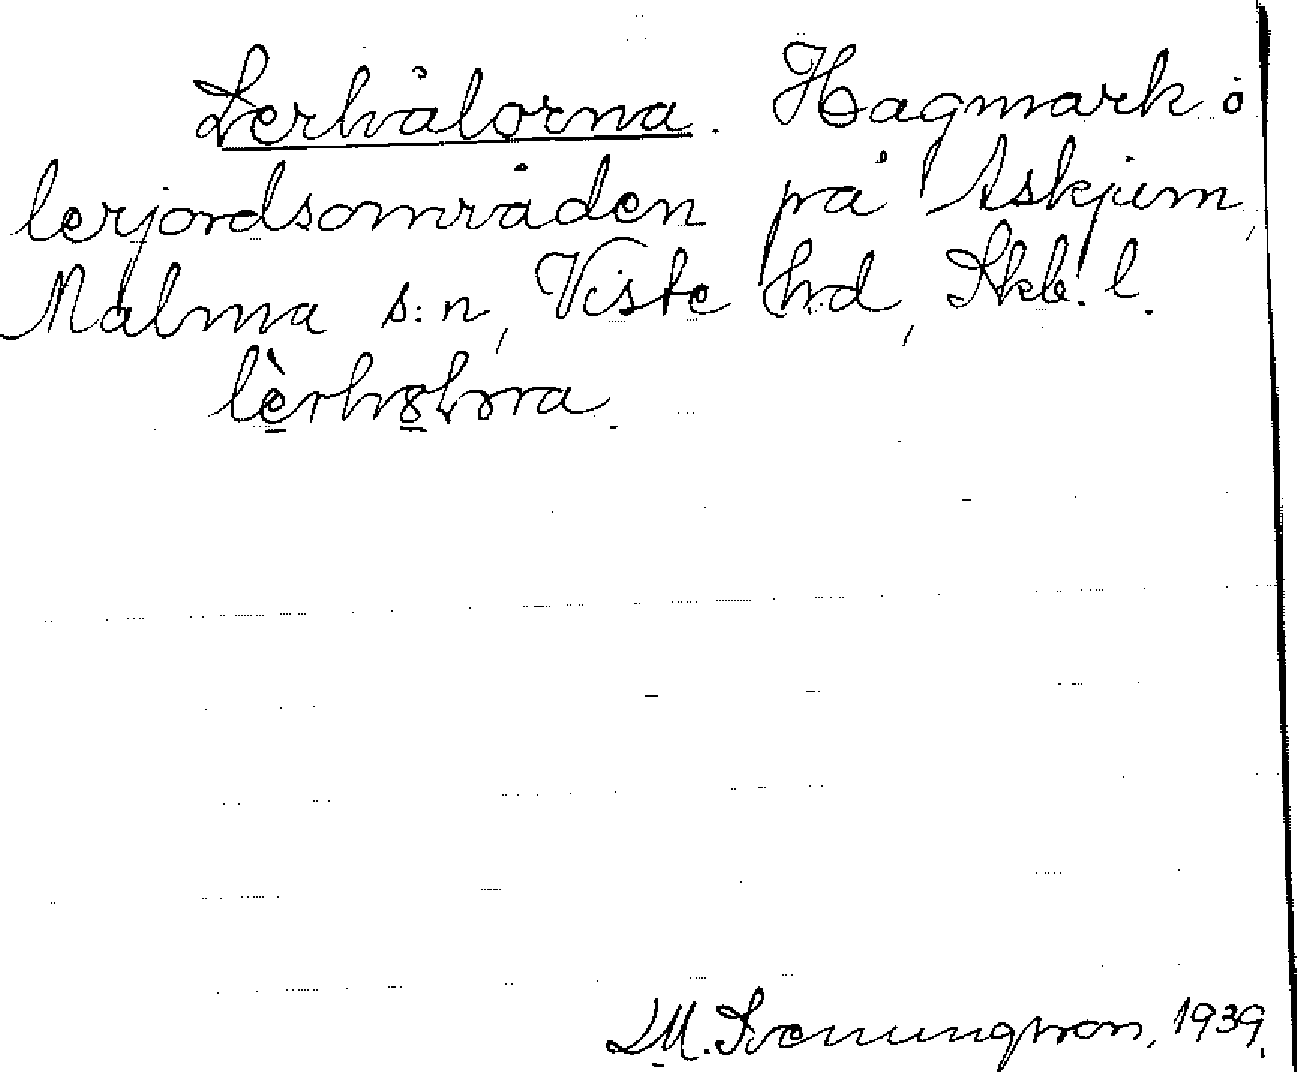 Lerhålorna. Hagmark o
lerjordsområden på Askjum,
Malma s:n, Viste hd, Skb. l.
L M. Svenungsson, 1939.